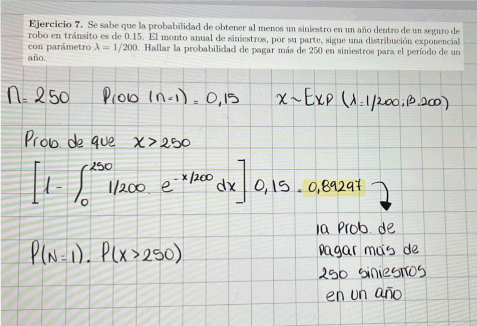 Ejercicio 7. Se sabe que la probabilidad de obtener al menos un siniestro en un año dentro de un seguro de
robo en tránsito es de 0.15. El monto anual de siniestros, por su parte, sigue una distribución exponencial
con parámetro λ = 1/200. Hallar la probabilidad de pagar más de 250 en siniestros para el período de un
año.
n = 250 Prob (n=1) = 0,15 x ~ Exp (λ=1/200; β=200)
Prob de que x > 250
[1 - ∫₀²⁵⁰ 1/200 . e^(-x/200) dx] 0,15 = 0,89297
la prob. de
pagar más de
250 siniestros
en un año
P(N=1) . P(X>250)